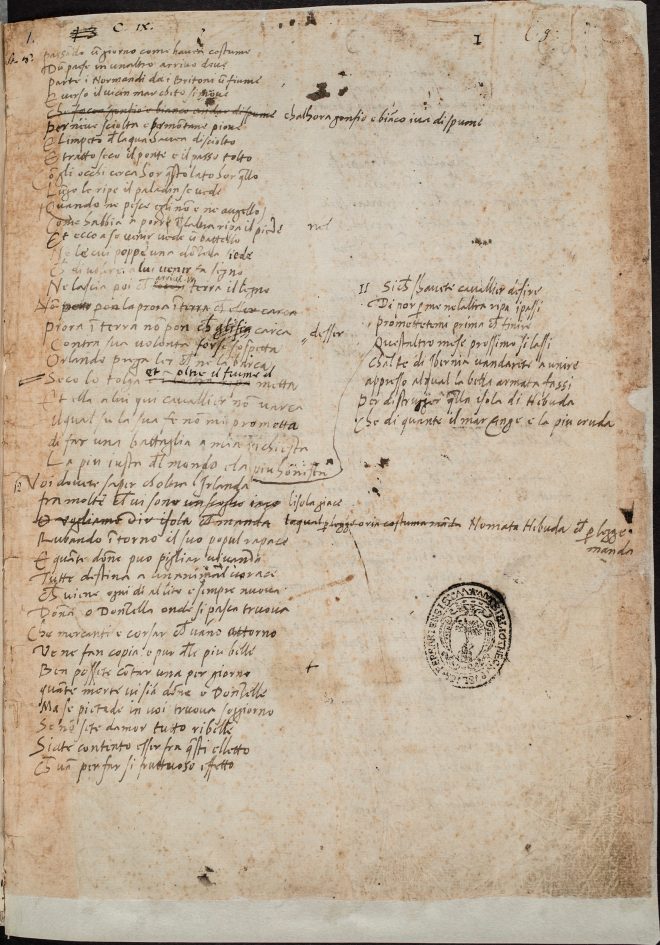 C. IX.
1
passado u giorno come havea costume
Du paese in unaltro arrivo dove
Parte i Normandi da i Britoni u fiume
E verso il vicin mar cheto si move
Che gonfio e bianco iva di spume chalhora gonfio e biaco iva di spume
Per nieve sciolta e p montane piove
E limpeto de laqua havea disciolto
E tratto seco il ponte e il passo tolto
Co gli occhi cerca hor qsto lato hor qllo
Lugo le ripe il paladin se vede
Quando ne pesce egli no e ne augello
Come habbia a porre ne laltra ripa il piede
Et ecco a se venir vede u battello
Ne le cui poppe una dozella siede
a lui venir fa segno
Ne lascia poi terra il legno
No pon la prora i terra carca
Prora i terra no pon chesser carica desser
Contra sua volonta forse sospetta
Orlando prega lei che ne la barca
Seco lo tolga et oltre il fiume il metta
Et ella a lui qui cavallier no varca
Il qual su la sua fe no mi prometta
di far una battaglia a mia richiesta
La piu iusta del mondo e la piu honesta
II Si che shavete cavallier desire
Di por p me ne laltra ripa i passi
Promettetemi prima che finire
Questaltro mese prossimo si lassi
Chal re di Ibernia vandarete a unire
appresso al qual la bella armata fassi
Per distrugger qlla isola di Hebuda
Che di quante il mar cinge e la piu cruda
12 Voi dovete saper choltra l Irlanda
fra molte che vi sono lisola giace
Nomata Hebuda che p legge manda
Rubando itorno il suo popul rapace
E quate done puo pigliar vivanda
Tutte destina a un animal vorace
Che viene ogni di al lito e sempre nuova
Dona o Donzella onde si pasca truova
Che mercanti e corsar che vano attorno
Ve ne fan copia e pur de le piu belle
Ben possete cotar una per giorno
quate morte vi sia done e Donzelle
Ma se pietade in voi truova soggiorno
Se no sete damor tutto ribelle
Siate contento esser fra qsti elletto
Che van per far si fruttuoso effetto